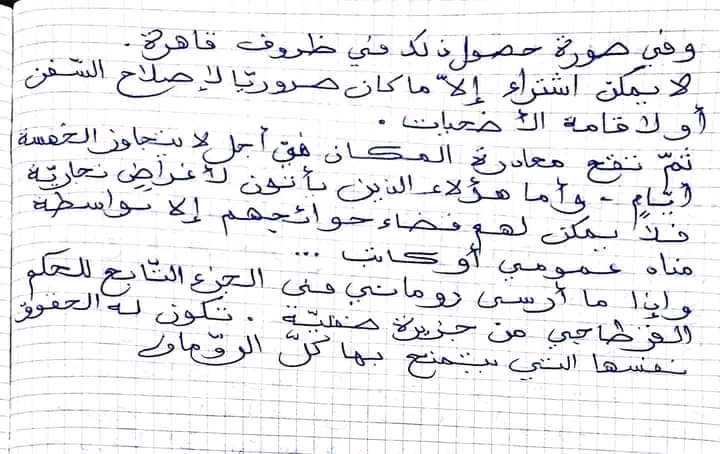 وفي صورة حصول ذلك في ظروف قاهرة.
لا يمكن اشتراء إلاّ ما كان ضروريّا لإصلاح السّفن
أو لاقامة الأضحيات.
ثمّ تقع مغادرة المكان في أجل لا يتجاوز الخمسة
أيّام - وأما هؤلاء الذين يأتون لأغراض تجاريّة
فلا يمكن لهم قضاء حوائجهم إلا بواسطة
مناد عمومي أو كاتب ...
وإذا ما أرسى روماني في الجزء التّابع للحكم
القرطاجي من جزيرة صقليّة. تكون له الحقوق
نفسها التي يتمتع بها كلّ الرّومان